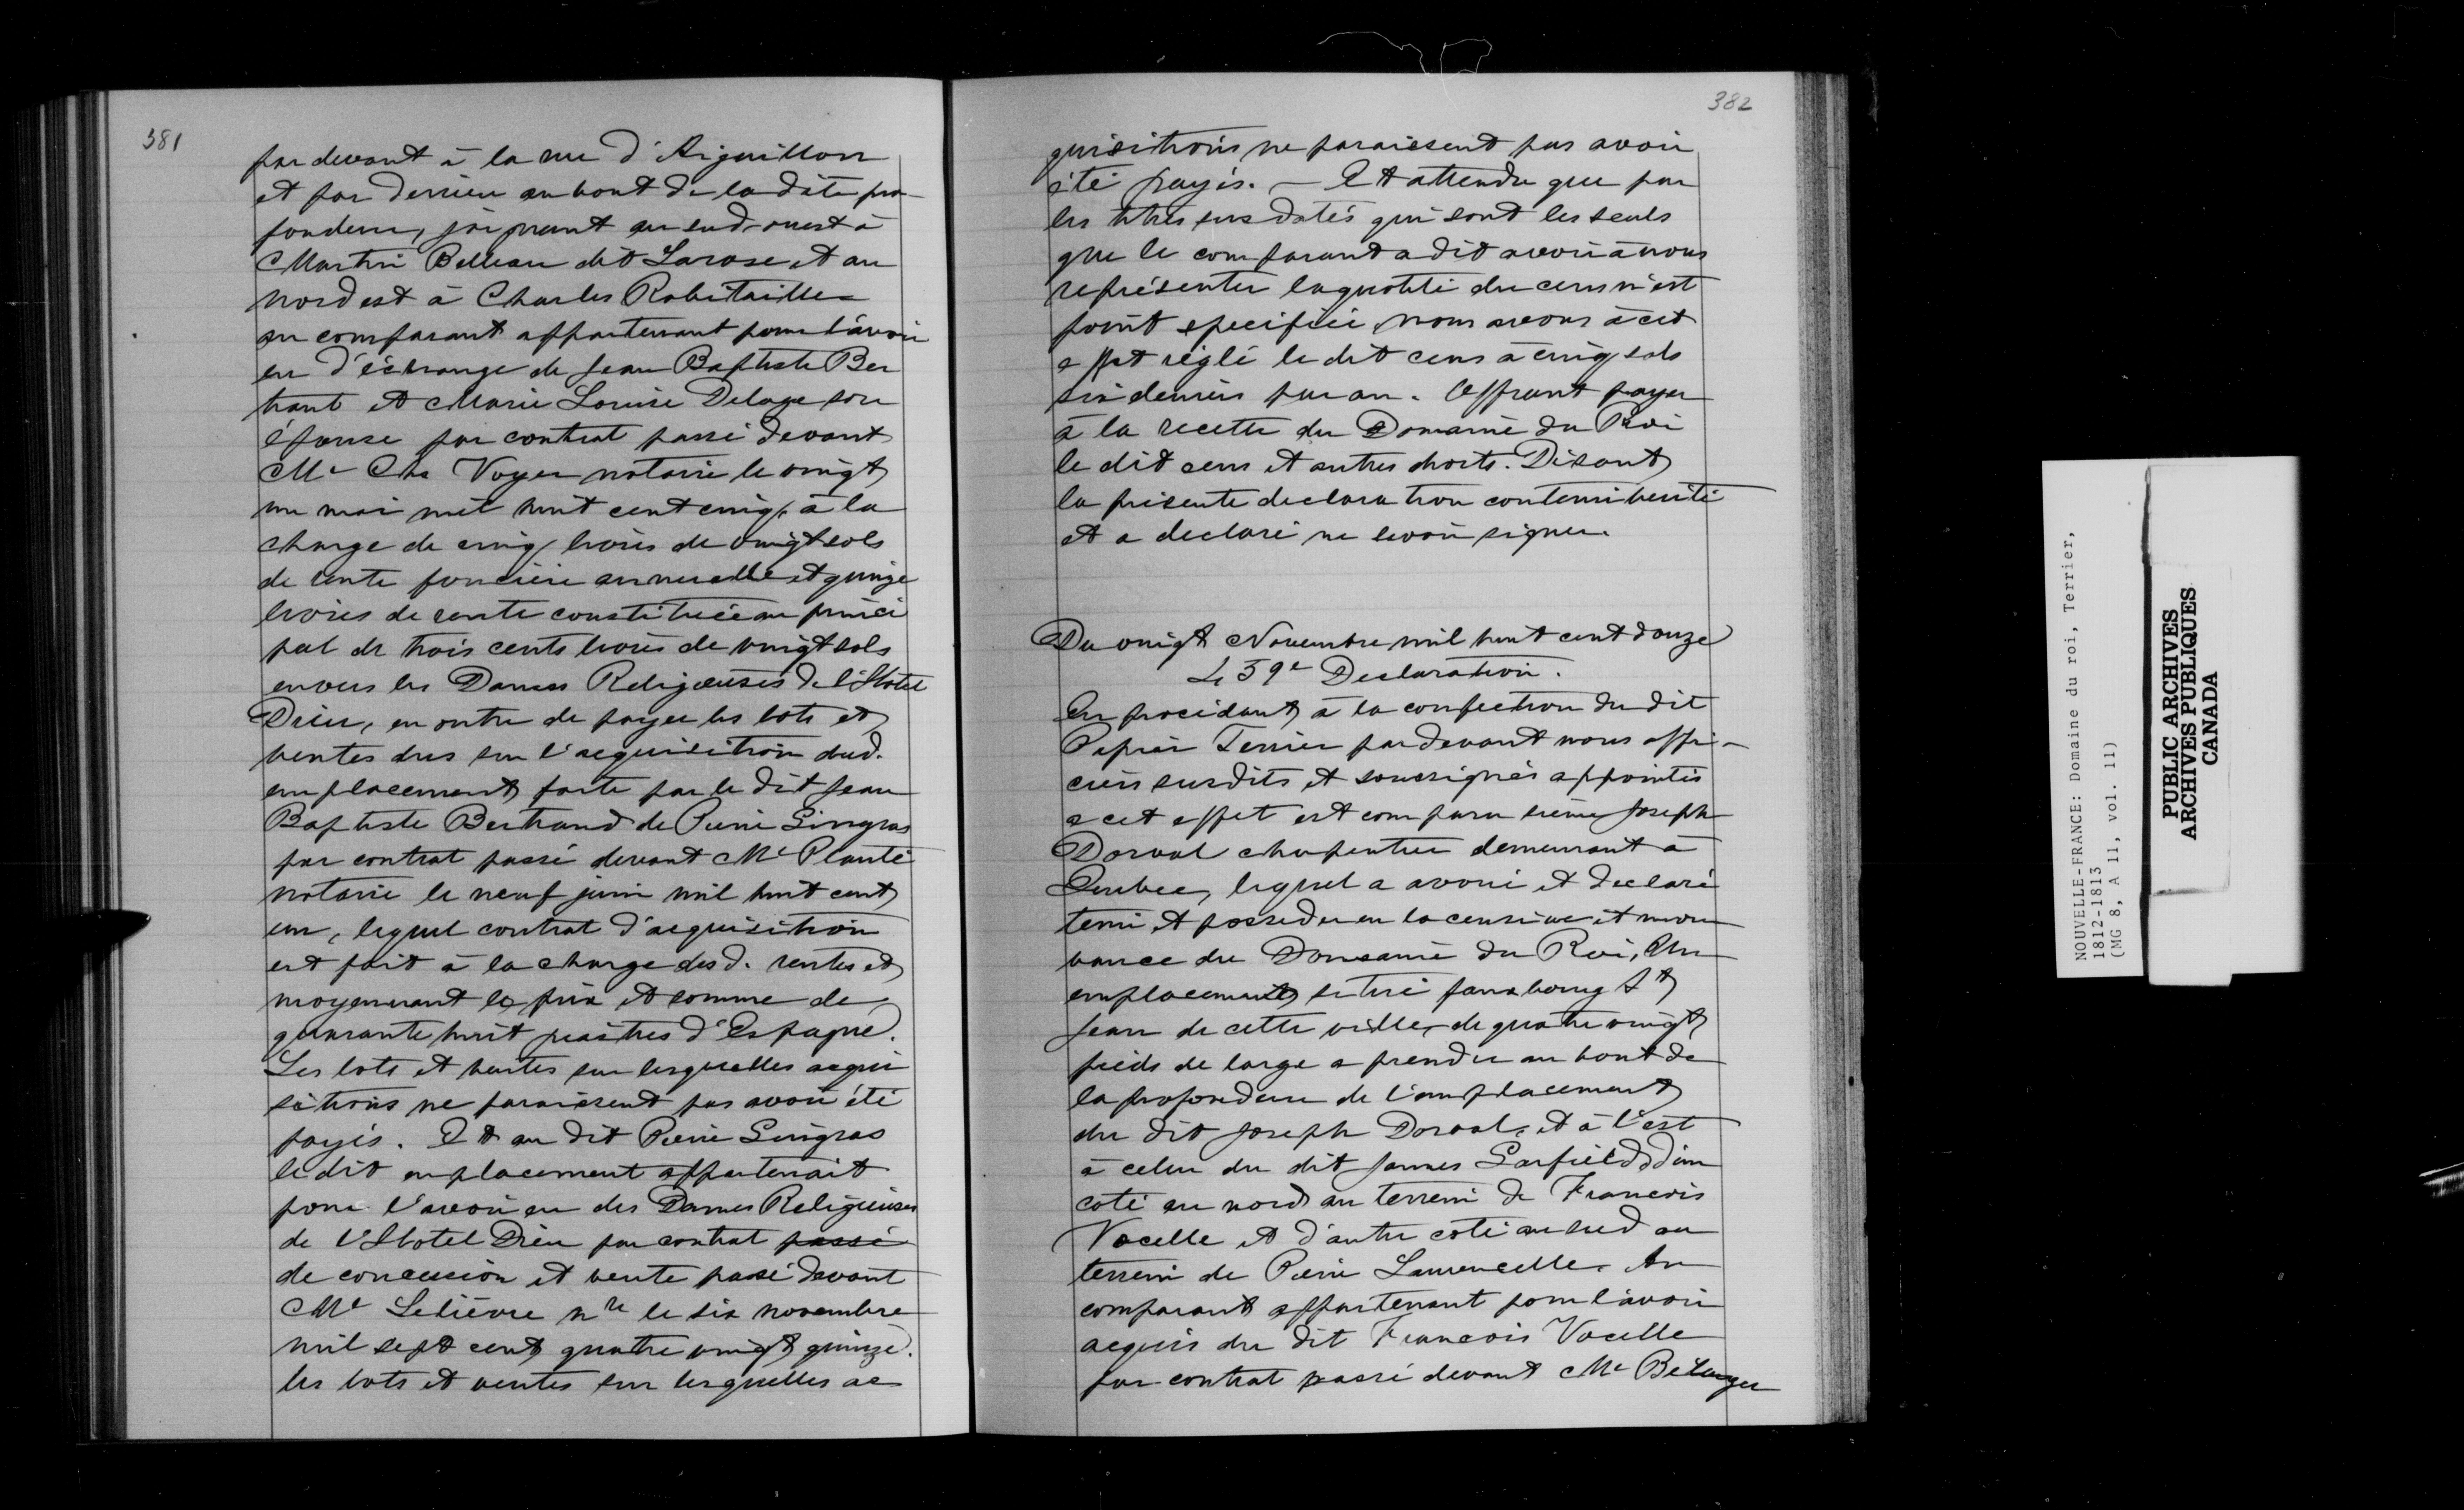 381
par devant à la rue d'Aiguillon
et par derrière au bout de la dite pro-
fondeur, joignant au sud-ouest à
Martin Belleau dit Larose et au
nord est à Charles Robitaille
au comparant appartenant pour l'avoir
eu d'échange de Jean Baptiste Ber
trant et Marie Louise Delage son
épouse par contrat passé devant
Me Chs Voyer notaire le vingt
un mai mil huit cent cinq, à la
charge de cinq livres de vingt sols
de rente foncière annuelle et quinze
livres de rente constituée au princi
pal de trois cents livres de vingt sols
envers les Dames Religieuses de l'Hotel
Dieu, en outre de payer les lots et
ventes dus sur l'acquisition dud.
emplacement faite par le dit Jean
Baptiste Bertrand de Pierre Gingras
par contrat passé devant Me Planté
notaire le neuf juin mil huit cent
un, lequel contrat d'acquisition
est fait à la charge desd. rentes et
moyennant le prix et somme de
quarante huit piastres d'Espagne.
Les lots et ventes sur lesquelles acqui
sitions ne paraissent pas avoir été
payés. Et au dit Pierre Gingras
le dit emplacement appartenait
pour l'avoir eu des Dames Religieuses
de l'Hotel Dieu par contrat passé
de concession et vente passé devant
Me Lelièvre nre le six novembre
mil sept cent quatre vingt quinze.
les lots et ventes sur lesquelles ac
382
quisitions ne paraissent pas avoir
été payés. — Et attendu que par
les titres susdatés qui sont les seuls
que le comparant a dit avoir à nous
représenter la quotité du cens n'est
point specifiée, nous avons à cet
effet réglé le dit cens à cinq sols
six deniers par an. Offrant payer
à la recette du Domaine du Roi
le dit cens et autres droits. Disant
la présente declaration contenir verité
et a declaré ne savoir signer.
Du vingt Novembre mil huit cent douze
Le 39e Declaration.
En procédant à la confection du dit
Papier Terrier pardevant nous offi-
ciers susdits et soussignés appointés
a cet effet est comparu sieur Joseph
Dorval charpentier demeurant à
Quebec, lequel a avoué et declaré
tenir et posseder en la censive et mou
vance du Domaine du Roi, Un
emplacement situé fauxbourg St
Jean de cette ville, de quatre vingt
pieds de large a prendre au bout de
la profondeur de l'emplacement
du dit Joseph Dorval, et à l'est
à celui du dit James Garfield, d'un
coté au nord au terrein de Francois
Vocelle et d'autre coté au sud au
terrein de Pierre Laurencelle. Au
comparant appartenant pour l'avoir
acquis du dit Francois Vocelle
par contrat passé devant Me Bélanger
NOUVELLE-FRANCE: Domaine du roi, Terrier,
1812-1813
(MG 8, A 11, vol. 11)
PUBLIC ARCHIVES
ARCHIVES PUBLIQUES
CANADA